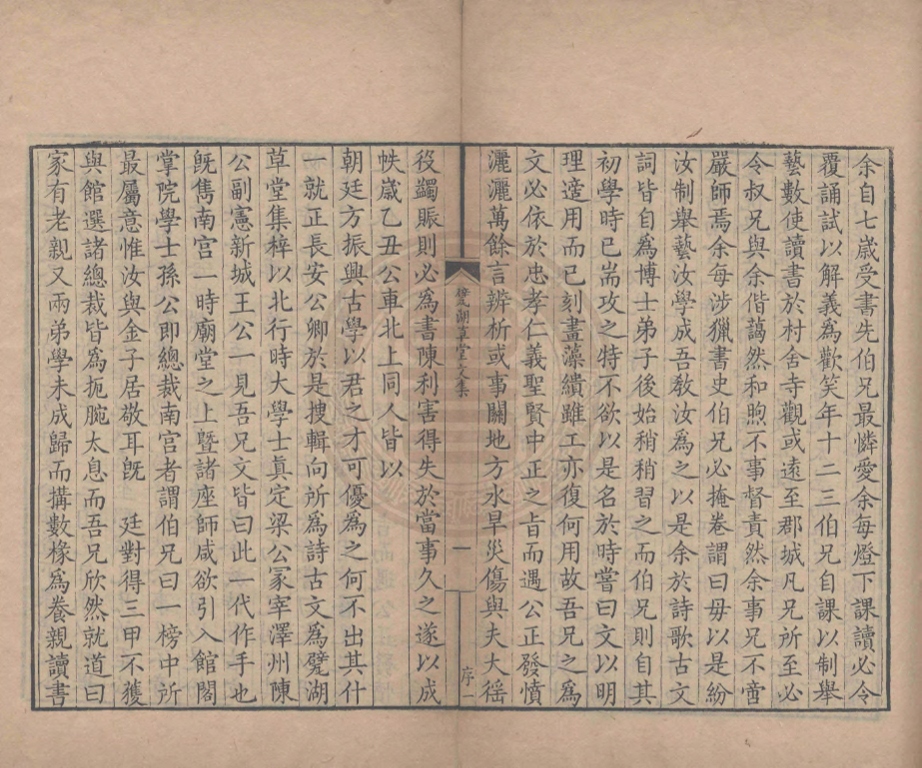 余自七歲受書先伯兄最憐愛余每燈下課讀必令
覆誦試以解義為歡笑年十二三伯兄自課以制舉
藝數使讀書於村舍寺觀或遠至郡城凡兄所至必
令叔兄與余偕藹然和煦不事督責然余事兄不啻
嚴師焉余每涉獵書史伯兄必掩卷謂曰毋以是紛
汝制舉藝汝學成吾教汝為之以是余於詩歌古文
詞皆自為博士弟子後始稍稍習之而伯兄則自其
初學時已耑攻之特不欲以是名於時嘗曰文以明
理適用而已刻畫藻繢雖工亦復何用故吾兄之為
文必依於忠孝仁義聖賢中正之旨而遇公正發憤
灑灑萬餘言辨析或事關地方水旱災傷與夫大徭
湖草堂文集
一
序一
役蠲賑則必為書陳利害得失於當事久之遂以成
帙歲乙丑公車北上同人皆以
朝廷方振興古學以君之才可優為之何不出其什
一就正長安公卿於是搜輯向所為詩古文為躄湖
草堂集梓以北行時大學士真定梁公冢宰澤州陳
公副憲新城王公一見吾兄文皆曰此一代作手也
既雋南宮一時廟堂之上暨諸座師咸欲引入館閣
掌院學士孫公即總裁南宮者謂伯兄曰一榜中所
最屬意惟汝與金子居敬耳既　廷對得三甲不獲
與館選諸總裁皆為扼腕太息而吾兄欣然就道曰
家有老親又兩弟學未成歸而搆數椽為養親讀書